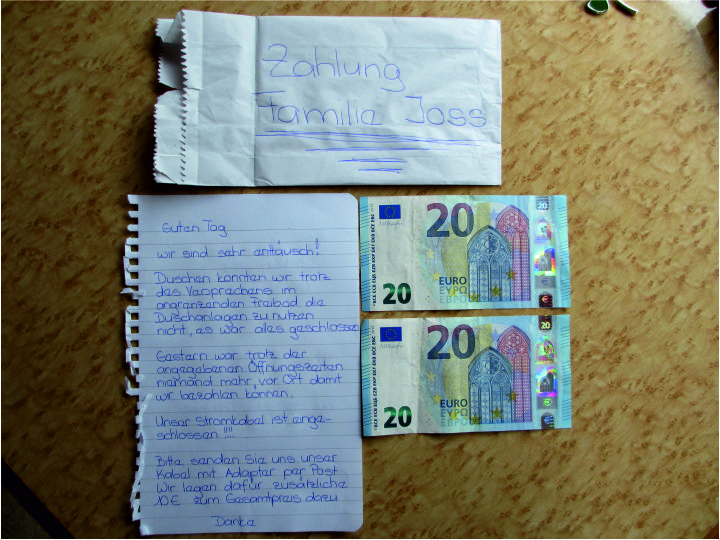 Zahlung
Familie Joss
Guten Tag
wir sind sehr enttäuscht!
Duschen konnten wir trotz
des Versprechens im
angrenzenden Freibad die
Duschanlagen zu nutzen
nicht, es war alles geschlossen
Gestern war trotz der
angegebenen Öffnungszeiten
niemand mehr vor Ort damit
wir bezahlen können.
Unser Stromkabel ist einge-
schlossen !!!!
Bitte senden Sie uns unser
Kabel mit Adapter per Post
Wir legen dafür zusätzliche
10€ zum Gesamtpreis dazu
Danke
20
20
EURO
ΕΥΡΩ
ЕВРО
20
20
20
EURO
ΕΥΡΩ
ЕВРО
20